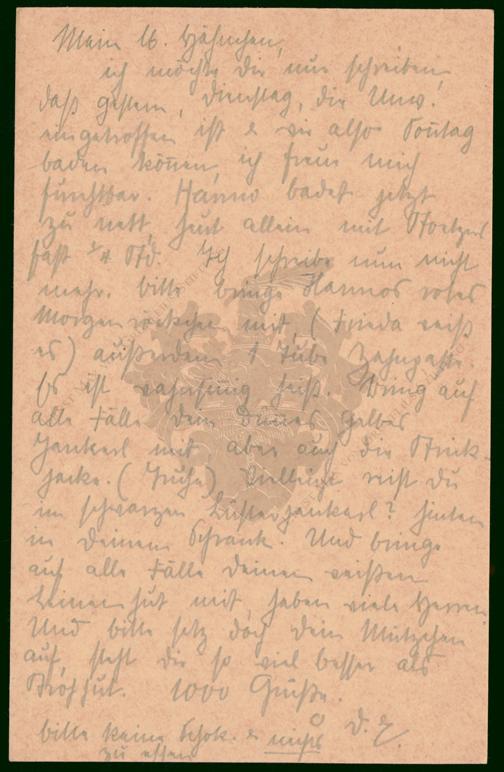 Mein lb. Hähnchen,
ich möchte dir nur schreiben,
daß gestern, Dienstag, die Unw.
eingetroffen ist & wir also Sonntag
baden können, ich freue mich
furchtbar. Hanno badet jetzt
zu nett, heut allein mit
fast ¼ Std. Ich schreibe nun nicht
mehr. bitte bringe Hannos rotes
Morgenröckchen mit, (Frieda weiß
es) außerdem 1 Tube Zahnpasta.
Es ist wahnsinnig heiß. Bring auf
alle Fälle dein dünnes gelbes
Jankerl mit aber auch die Strick-
jacke. (Truhe) Vielleicht reist du
im schwarzen Lüsterjankerl? hinten
in deinem Schrank. Und bringe
auf alle Fälle deinen weißen
Leinenhut mit, haben viele Herren.
Und bitte setz doch dein Mützchen
auf, steht dir so viel besser als
Strohhut. 1000 Grüße.
D. E.
bitte keine Schok. & nichts
zu essen